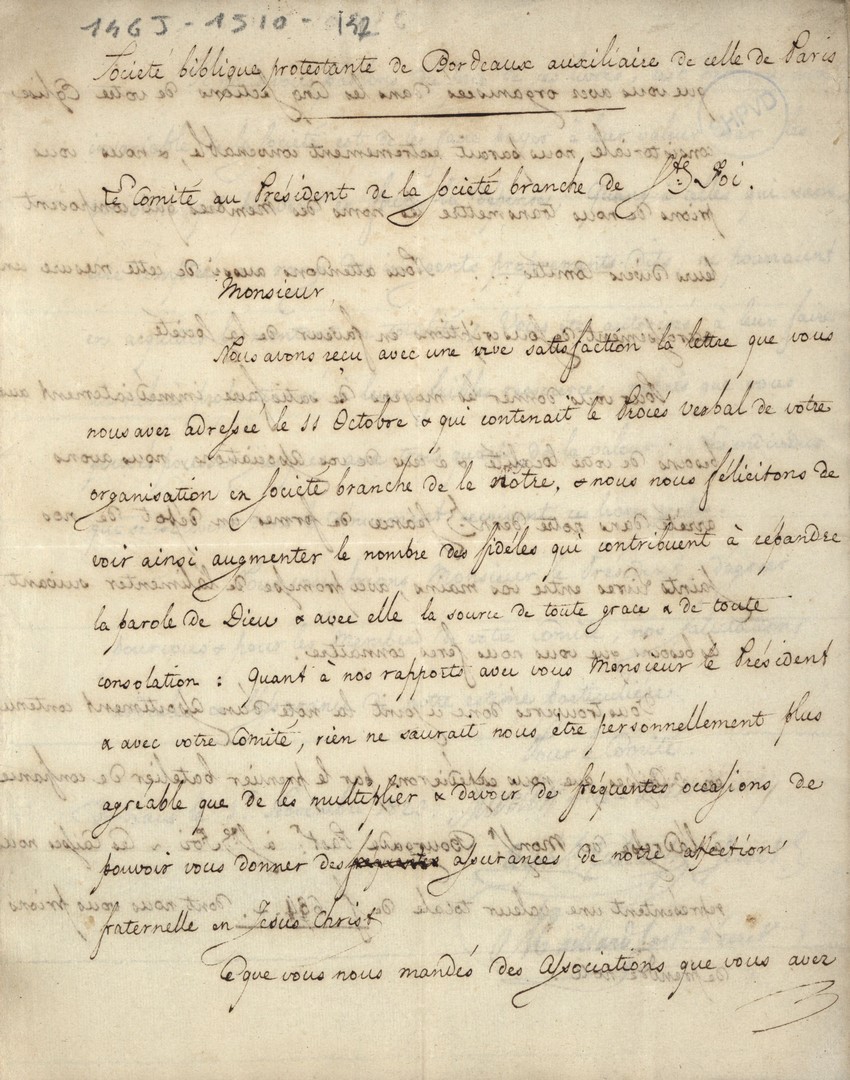 1465-1510-142
Societé biblique protestante de Bordeaux auxiliaire de celle de Paris
Le Comité au Président de la Societé branche de Ste Foi.
Monsieur,
Nous avons reçu avec une vive satisfaction la lettre que vous
nous avez adressée le 11 Octobre & qui contenait le Procès verbal de votre
organisation en Societé branche de le nôtre, & nous nous félicitons de
voir ainsi augmenter le nombre des fidéles qui contribuent à répandre
la parole de Dieu & avec elle la source de toute grace & de toute
consolation : Quant à nos rapports avec vous Monsieur le Président
& avec votre Comité, rien ne saurait nous être personnellement plus
agréable que de les multiplier & d'avoir de fréquentes occasions de
pouvoir vous donner des assurances de notre affection
fraternelle en Jesus Christ
Ce que vous nous mandés des Associations que vous avez